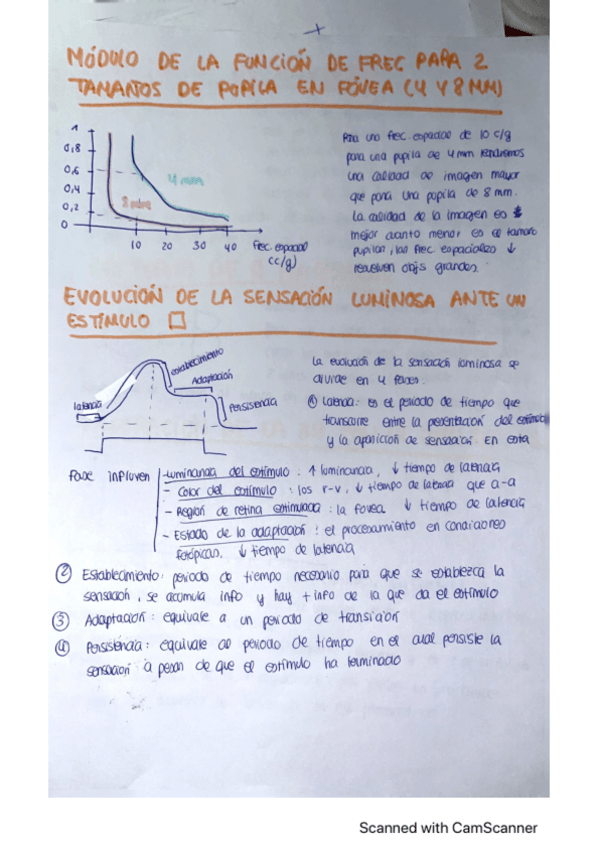 MÓDULO DE LA FUNCIÓN DE FREC PARA 2
TAMAÑOS DE PUPILA EN FÓVEA (4 Y 8 MM)
1
0,8
0,6
0,4
0,2
0
4 mm
8 mm
10 20 30 40 frec. espacial
(cc/g)
Para una frec. espacial de 10 c/g
para una pupila de 4 mm tendremos
una calidad de imagen mayor
que para una pupila de 8 mm.
La calidad de la imagen es
mejor cuanto menor es el tamaño
pupilar, las frec espaciales ↓
resuelven objs grandes.
EVOLUCIÓN DE LA SENSACIÓN LUMINOSA ANTE UN
ESTÍMULO □
latencia
establecimiento
Adaptación
Persistencia
La evolución de la sensación luminosa se
divide en 4 fases.
① Latencia: es el periodo de tiempo que
transcurre entre la presentación del estímulo
y la aparición de sensación. En esta
fase influyen - Luminancia del estímulo: ↑ luminancia, ↓ tiempo de latencia
- Color del estímulo: los r-v, ↓ tiempo de latencia que a-a
- Región de retina estimulada: la fóvea ↓ tiempo de latencia
- Estado de la adaptación: el procesamiento en condiciones
fotópicas, ↓ tiempo de latencia
② Establecimiento: periodo de tiempo necesario para que se establezca la
sensación, se acumula info y hay + info de la que da el estímulo
③ Adaptación: equivale a un periodo de transición
④ Persistencia: equivale al periodo de tiempo en el cual persiste la
sensación a pesar de que el estímulo ha terminado
Scanned with CamScanner